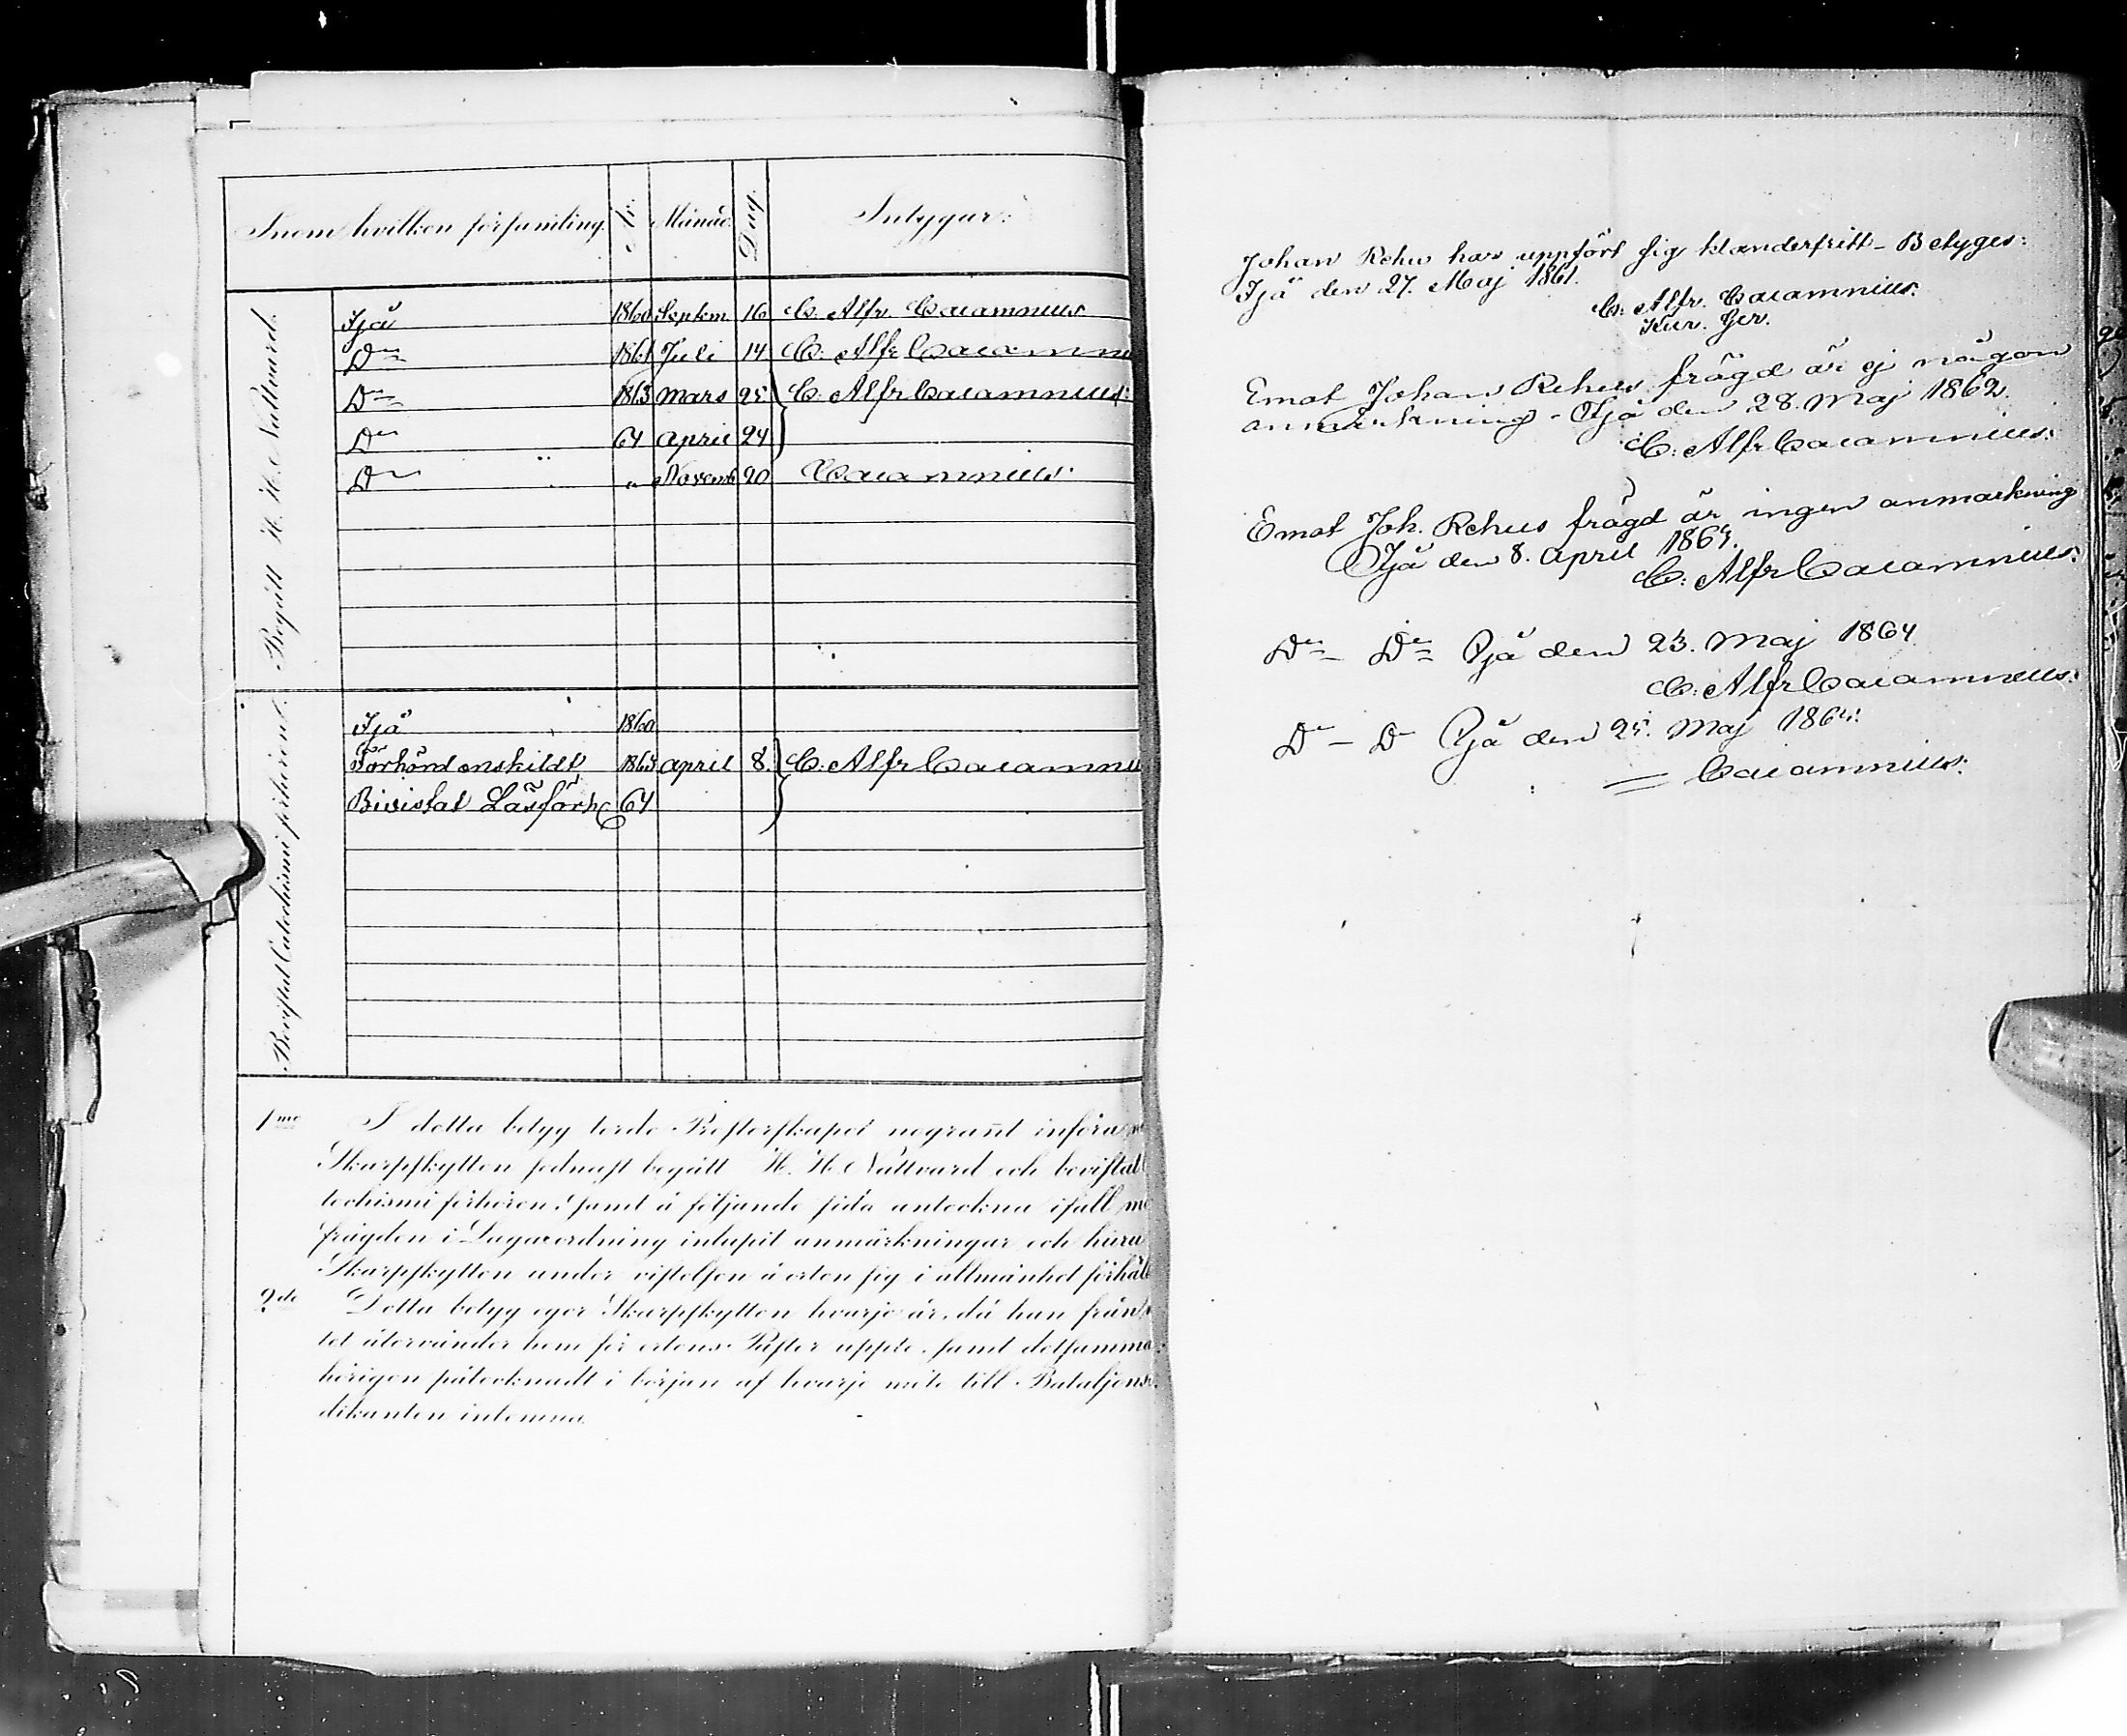 Inom hvilken församling. År. Månad. Dag. Intygar:
Begått H. H. Nattvard.
Ijå 1860 Septem. 16 C. Alfr. Cajamnius
Do 1861 Juli 14 C. Alfr Cajamniu
Do 1863 Mars 25 C. Alfr Cajamnius:
Do 64 April 24
Do " " Novemb 20 Cajamnius
Bevistat Catechismi förhören.
Ijå 1860
Förhörd enskildt 1863 April 8. C. Alfr Cajamniu
Bivistat Läsförh 64
1mo I detta betyg torde Presterskapet nogrant införa
Skarpskytten sednast begått H. H. Nattvard och bevistat
techismi förhören; samt å följande sida anteckna ifall
frägden i Lagaordning inlupit anmärkningar och huru
Skarpskytten under vistelsen å orten sig i allmänhet förhåll
2do Detta betyg eger Skarpskytten hvarje år, då han från
tet återvänder hem för ortens Präster uppte, samt detsamma
hörigen påtecknadt i början af hvarje möte till Bataljons
dikanten inlemna.
Johan Rehu har uppfört sig klanderfritt - Betyges:
Ijå den 27. Maj 1861.
C. Alfr. Cajamnius:
Emot Johan Rehus frägd är ej någon
anmärkning - Ijå den 28. Maj 1862.
C. Alfr Cajamnius:
Emot Joh. Rehus frägd är ingen anmärkning
Ijå den 8. April 1863.
C. Alfr Cajamnius:
Do - Do Ijå den 23. Maj 1864
C. Alfr Cajamnius:
Do - Do Ijå den 25. Maj
Cajamnius: